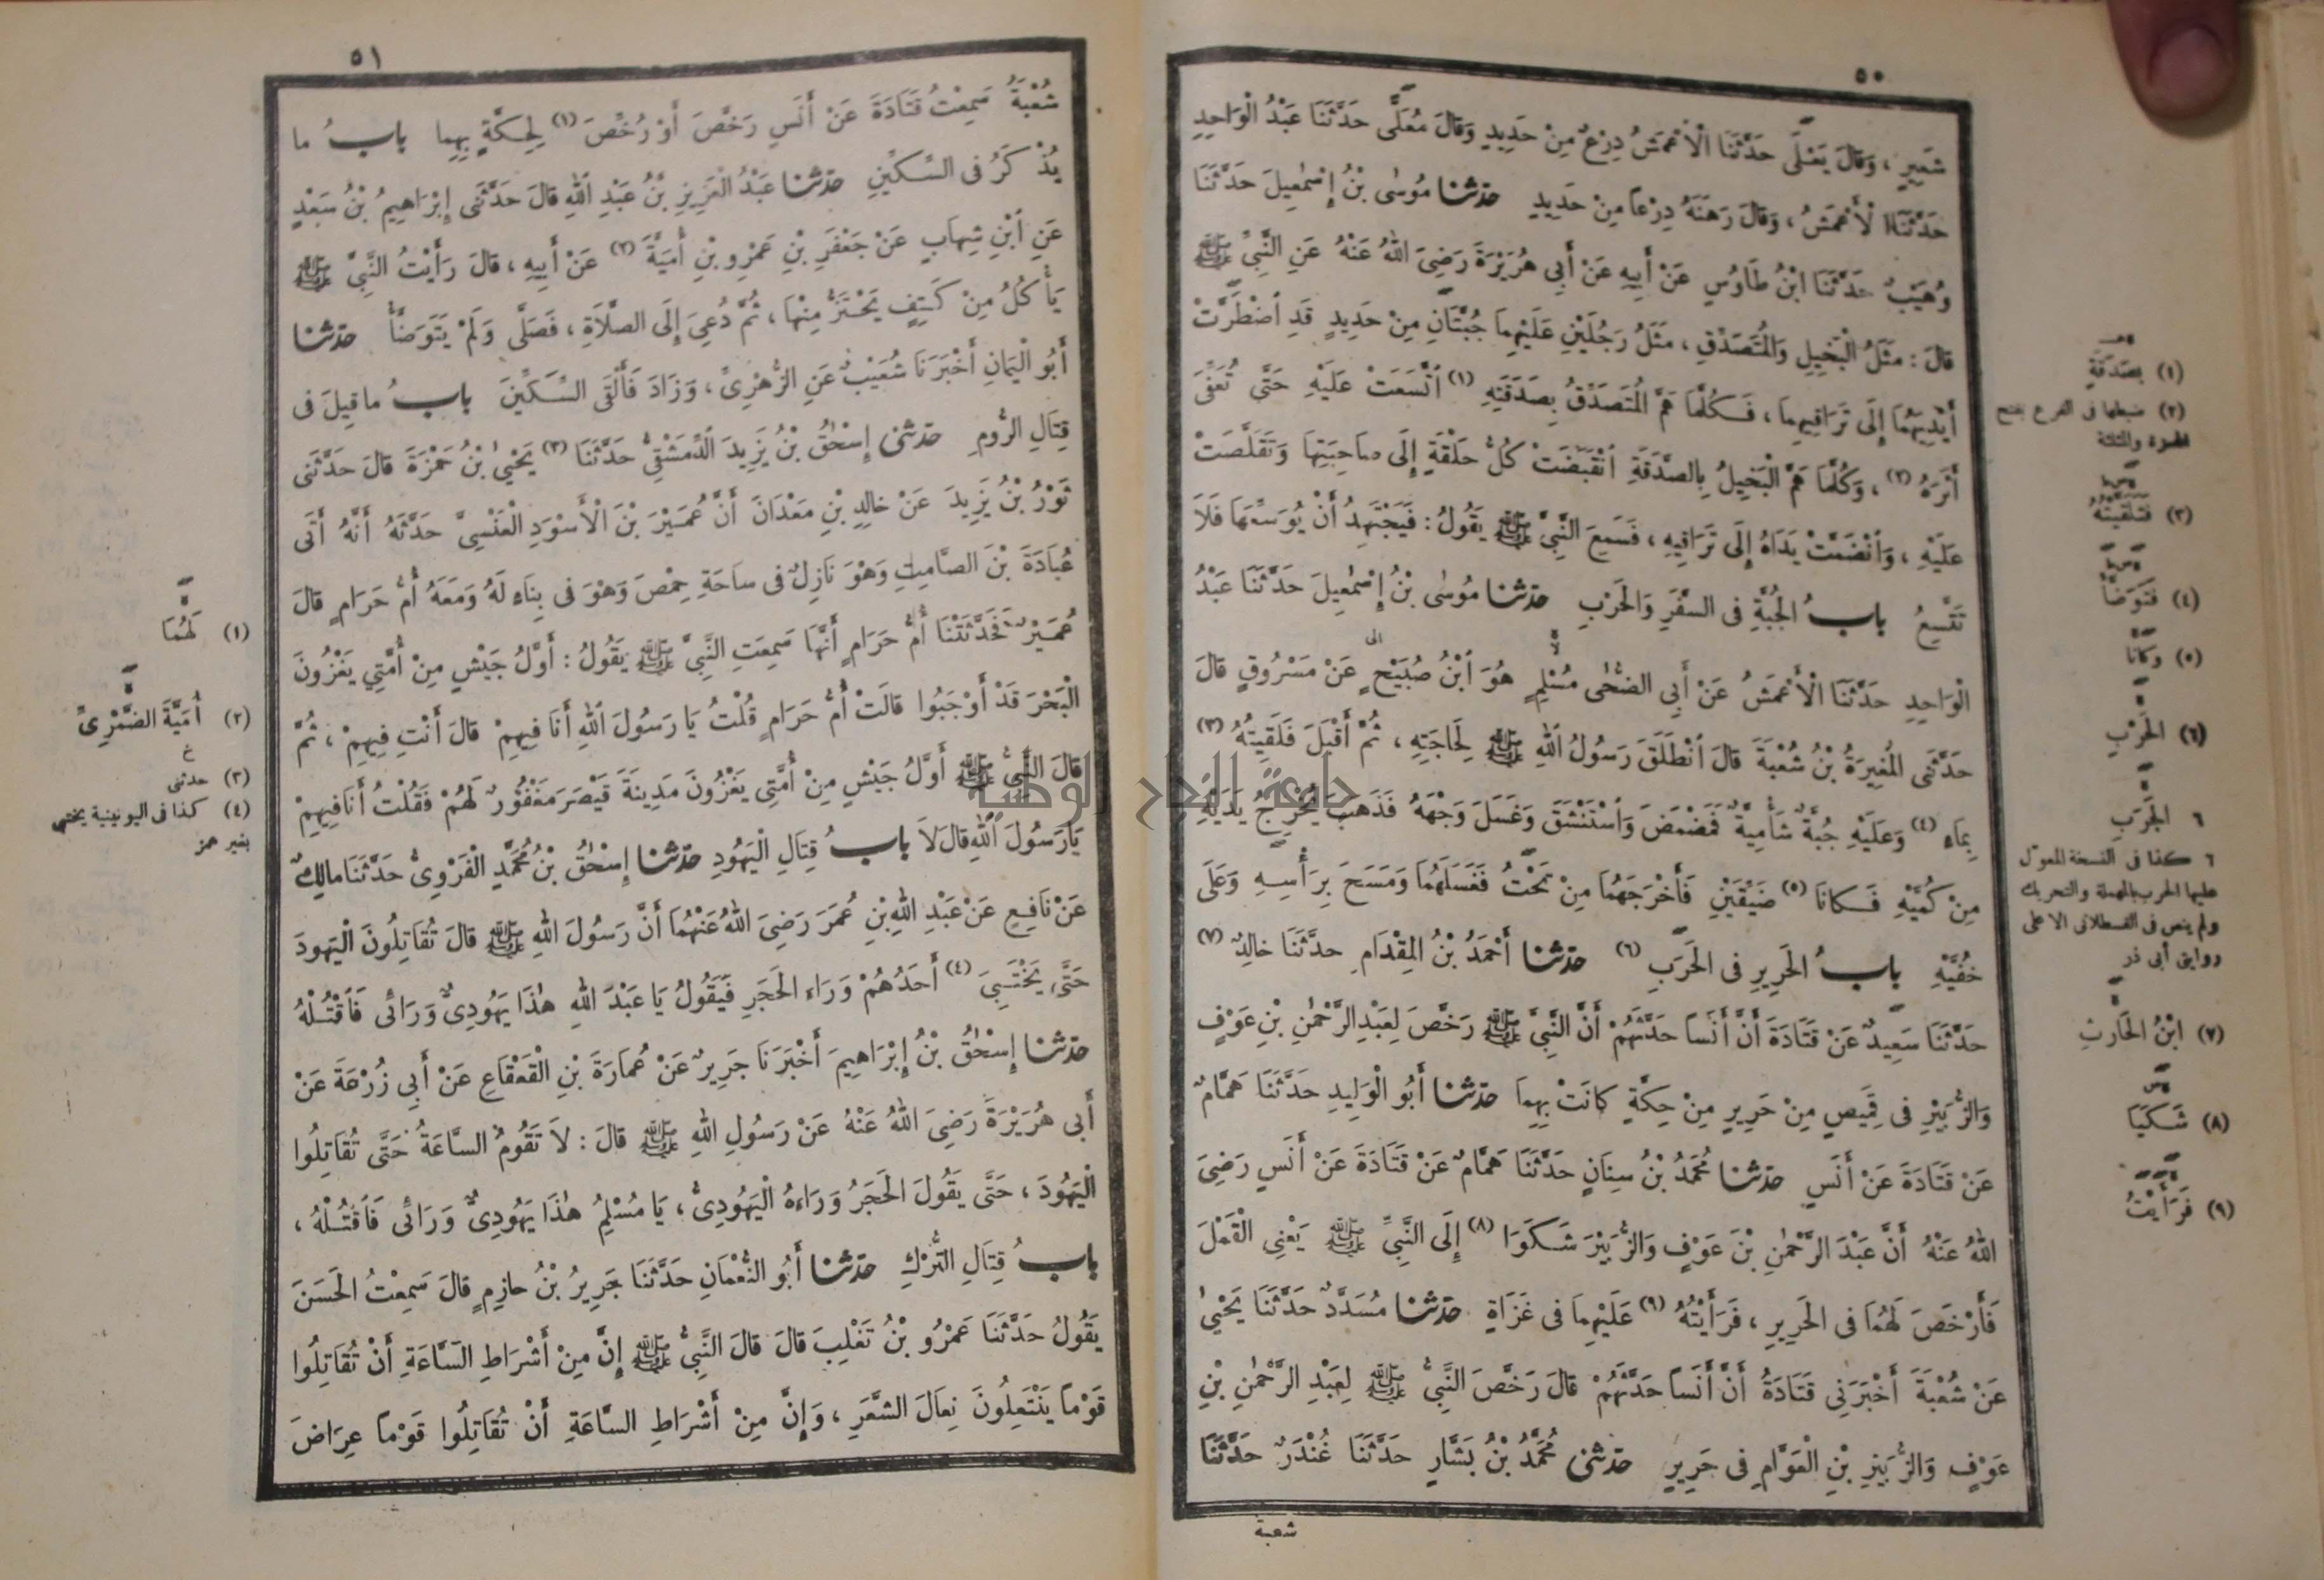 ٥٠
شَعِيرٍ ، وَقَالَ يَعْلَى حَدَّثَنَا الْأَعْمَشُ دِرْعٌ مِنْ حَدِيدٍ وَقَالَ مُعَلًّى حَدَّثَنَا عَبْدُ الْوَاحِدِ
حَدَّثَنَا الْأَعْمَشُ ، وَقَالَ رَهَنَهُ دِرْعًا مِنْ حَدِيدٍ حدثنا مُوسٰى بْنُ إِسْمٰعِيلَ حَدَّثَنَا
وُهَيْبٌ حَدَّثَنَا ابْنُ طَاوُسٍ عَنْ أَبِيهِ عَنْ أَبِي هُرَيْرَةَ رَضِيَ اللّٰهُ عَنْهُ عَنِ النَّبِيِّ ﷺ
قَالَ : مَثَلُ الْبَخِيلِ وَالْمُتَصَدِّقِ ، مَثَلُ رَجُلَيْنِ عَلَيْهِمَا جُبَّتَانِ مِنْ حَدِيدٍ قَدِ اضْطَرَّتْ
أَيْدِيَهُمَا إِلَى تَرَاقِيهِمَا ، فَكُلَّمَا هَمَّ الْمُتَصَدِّقُ بِصَدَقَتِهِ (١) اتَّسَعَتْ عَلَيْهِ حَتَّى تُعَفِّيَ
أَثَرَهُ (٢) ، وَكُلَّمَا هَمَّ الْبَخِيلُ بِالصَّدَقَةِ انْقَبَضَتْ كُلُّ حَلْقَةٍ إِلَى صَاحِبَتِهَا وَتَقَلَّصَتْ
عَلَيْهِ ، وَانْضَمَّتْ يَدَاهُ إِلَى تَرَاقِيهِ ، فَسَمِعَ النَّبِيَّ ﷺ يَقُولُ : فَيَجْتَهِدُ أَنْ يُوَسِّعَهَا فَلَا
تَتَّسِعُ بابُ الْجُبَّةِ فِي السَّفَرِ وَالْحَرْبِ حدثنا مُوسٰى بْنُ إِسْمٰعِيلَ حَدَّثَنَا عَبْدُ
الْوَاحِدِ حَدَّثَنَا الْأَعْمَشُ عَنْ أَبِي الضُّحٰى مُسْلِمٍ هُوَ ابْنُ صُبَيْحٍ عَنْ مَسْرُوقٍ قَالَ
حَدَّثَنِي الْمُغِيرَةُ بْنُ شُعْبَةَ قَالَ انْطَلَقَ رَسُولُ اللّٰهِ ﷺ لِحَاجَتِهِ ، ثُمَّ أَقْبَلَ فَلَقِيتُهُ (٣)
بِمَاءٍ (٤) وَعَلَيْهِ جُبَّةٌ شَأْمِيَّةٌ فَمَضْمَضَ وَاسْتَنْشَقَ وَغَسَلَ وَجْهَهُ فَذَهَبَ يُخْرِجُ يَدَيْهِ
مِنْ كُمَّيْهِ فَكَانَا (٥) ضَيِّقَيْنِ فَأَخْرَجَهُمَا مِنْ تَحْتُ فَغَسَلَهُمَا وَمَسَحَ بِرَأْسِهِ وَعَلَى
خُفَّيْهِ بابُ الْحَرِيرِ فِي الْحَرْبِ (٦) حدثنا أَحْمَدُ بْنُ الْمِقْدَامِ حَدَّثَنَا خَالِدٌ (٧)
حَدَّثَنَا سَعِيدٌ عَنْ قَتَادَةَ أَنَّ أَنَسًا حَدَّثَهُمْ أَنَّ النَّبِيَّ ﷺ رَخَّصَ لِعَبْدِ الرَّحْمٰنِ بْنِ عَوْفٍ
وَالزُّبَيْرِ فِي قَمِيصٍ مِنْ حَرِيرٍ مِنْ حِكَّةٍ كَانَتْ بِهِمَا حدثنا أَبُو الْوَلِيدِ حَدَّثَنَا هَمَّامٌ
عَنْ قَتَادَةَ عَنْ أَنَسٍ حدثنا مُحَمَّدُ بْنُ سِنَانٍ حَدَّثَنَا هَمَّامٌ عَنْ قَتَادَةَ عَنْ أَنَسٍ رَضِيَ
اللّٰهُ عَنْهُ أَنَّ عَبْدَ الرَّحْمٰنِ بْنَ عَوْفٍ وَالزُّبَيْرَ شَكَوَا (٨) إِلَى النَّبِيِّ ﷺ يَعْنِي الْقَمْلَ
فَأَرْخَصَ لَهُمَا فِي الْحَرِيرِ ، فَرَأَيْتُهُ (٩) عَلَيْهِمَا فِي غَزَاةٍ حدثنا مُسَدَّدٌ حَدَّثَنَا يَحْيٰى
عَنْ شُعْبَةَ أَخْبَرَنِي قَتَادَةُ أَنَّ أَنَسًا حَدَّثَهُمْ قَالَ رَخَّصَ النَّبِيُّ ﷺ لِعَبْدِ الرَّحْمٰنِ بْنِ
عَوْفٍ وَالزُّبَيْرِ بْنِ الْعَوَّامِ فِي حَرِيرٍ حدثني مُحَمَّدُ بْنُ بَشَّارٍ حَدَّثَنَا غُنْدَرٌ حَدَّثَنَا
شعبة
(١) بِصَدَقَةٍ
(٢) ضبطها فى الفرع بفتح
الهمزة والمثلثة
(٣) فَتَلَقَّيْتُهُ
(٤) فَتَوَضَّأَ
(٥) وَكَانَا
(٦) الْحَرْبِ
٦ الْجَرَبِ
٦ كذا فى النسخة المعوّل
عليها الحرب بالمهملة والتحريك
ولم ينص فى القسطلانى الا على
روايتى أبى ذر
(٧) ابْنُ الْحَارِثِ
(٨) شَكَيَا
(٩) فَرَأَيْتُ
٥١
شُعْبَةُ سَمِعْتُ قَتَادَةَ عَنْ أَنَسٍ رَخَّصَ أَوْ رُخِّصَ (١) لِحِكَّةٍ بِهِمَا بابُ مَا
يُذْكَرُ فِي السِّكِّينِ حدثنا عَبْدُ الْعَزِيزِ بْنُ عَبْدِ اللّٰهِ قَالَ حَدَّثَنِي إِبْرَاهِيمُ بْنُ سَعْدٍ
عَنِ ابْنِ شِهَابٍ عَنْ جَعْفَرِ بْنِ عَمْرِو بْنِ أُمَيَّةَ (٢) عَنْ أَبِيهِ ، قَالَ رَأَيْتُ النَّبِيَّ ﷺ
يَأْكُلُ مِنْ كَتِفٍ يَحْتَزُّ مِنْهَا ، ثُمَّ دُعِيَ إِلَى الصَّلَاةِ ، فَصَلَّى وَلَمْ يَتَوَضَّأْ حدثنا
أَبُو الْيَمَانِ أَخْبَرَنَا شُعَيْبٌ عَنِ الزُّهْرِيِّ ، وَزَادَ فَأَلْقَى السِّكِّينَ بابُ مَا قِيلَ فِي
قِتَالِ الرُّومِ حدثني إِسْحٰقُ بْنُ يَزِيدَ الدِّمَشْقِيُّ حَدَّثَنَا (٣) يَحْيٰى بْنُ حَمْزَةَ قَالَ حَدَّثَنِي
ثَوْرُ بْنُ يَزِيدَ عَنْ خَالِدِ بْنِ مَعْدَانَ أَنَّ عُمَيْرَ بْنَ الْأَسْوَدِ الْعَنْسِيَّ حَدَّثَهُ أَنَّهُ أَتَى
عُبَادَةَ بْنَ الصَّامِتِ وَهْوَ نَازِلٌ فِي سَاحَةِ حِمْصَ وَهْوَ فِي بِنَاءٍ لَهُ وَمَعَهُ أُمُّ حَرَامٍ قَالَ
عُمَيْرٌ فَحَدَّثَتْنَا أُمُّ حَرَامٍ أَنَّهَا سَمِعَتِ النَّبِيَّ ﷺ يَقُولُ : أَوَّلُ جَيْشٍ مِنْ أُمَّتِي يَغْزُونَ
الْبَحْرَ قَدْ أَوْجَبُوا قَالَتْ أُمُّ حَرَامٍ قُلْتُ يَا رَسُولَ اللّٰهِ أَنَا فِيهِمْ قَالَ أَنْتِ فِيهِمْ ، ثُمَّ
قَالَ النَّبِيُّ ﷺ أَوَّلُ جَيْشٍ مِنْ أُمَّتِي يَغْزُونَ مَدِينَةَ قَيْصَرَ مَغْفُورٌ لَهُمْ فَقُلْتُ أَنَا فِيهِمْ
يَا رَسُولَ اللّٰهِ قَالَ لَا بابُ قِتَالِ الْيَهُودِ حدثنا إِسْحٰقُ بْنُ مُحَمَّدٍ الْفَرْوِيُّ حَدَّثَنَا مَالِكٌ
عَنْ نَافِعٍ عَنْ عَبْدِ اللّٰهِ بْنِ عُمَرَ رَضِيَ اللّٰهُ عَنْهُمَا أَنَّ رَسُولَ اللّٰهِ ﷺ قَالَ تُقَاتِلُونَ الْيَهُودَ
حَتَّى يَخْتَبِيَ (٤) أَحَدُهُمْ وَرَاءَ الْحَجَرِ فَيَقُولُ يَا عَبْدَ اللّٰهِ هٰذَا يَهُودِيٌّ وَرَائِي فَاقْتُلْهُ
حدثنا إِسْحٰقُ بْنُ إِبْرَاهِيمَ أَخْبَرَنَا جَرِيرٌ عَنْ عُمَارَةَ بْنِ الْقَعْقَاعِ عَنْ أَبِي زُرْعَةَ عَنْ
أَبِي هُرَيْرَةَ رَضِيَ اللّٰهُ عَنْهُ عَنْ رَسُولِ اللّٰهِ ﷺ قَالَ : لَا تَقُومُ السَّاعَةُ حَتَّى تُقَاتِلُوا
الْيَهُودَ ، حَتَّى يَقُولَ الْحَجَرُ وَرَاءَهُ الْيَهُودِيُّ ، يَا مُسْلِمُ هٰذَا يَهُودِيٌّ وَرَائِي فَاقْتُلْهُ ،
بابُ قِتَالِ التُّرْكِ حدثنا أَبُو النُّعْمَانِ حَدَّثَنَا جَرِيرُ بْنُ حَازِمٍ قَالَ سَمِعْتُ الْحَسَنَ
يَقُولُ حَدَّثَنَا عَمْرُو بْنُ تَغْلِبَ قَالَ قَالَ النَّبِيُّ ﷺ إِنَّ مِنْ أَشْرَاطِ السَّاعَةِ أَنْ تُقَاتِلُوا
قَوْمًا يَنْتَعِلُونَ نِعَالَ الشَّعَرِ ، وَإِنَّ مِنْ أَشْرَاطِ السَّاعَةِ أَنْ تُقَاتِلُوا قَوْمًا عِرَاضَ
(١) لَهُمَا
(٢) أُمَيَّةَ الضَّمْرِيِّ
(٣) حدثنى
(٤) كذا فى اليونينية يختبى
بغير همز
جامعة النجاح الوطنية